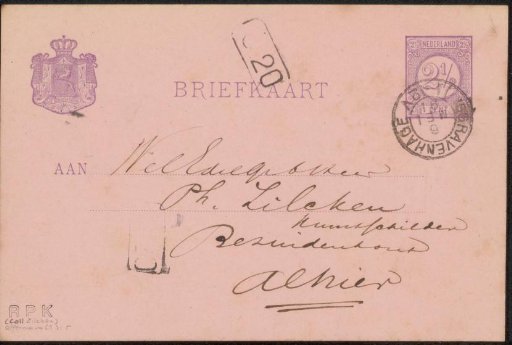 C 20
NEDERLAND
2½
BRIEFKAART
'S GRAVENHAGE
AAN WelEdelgeb Heer
Ph. Zilcken
Kunstschilder
Bezuidenhout
Alhier
R P K
(Coll Zilcken)